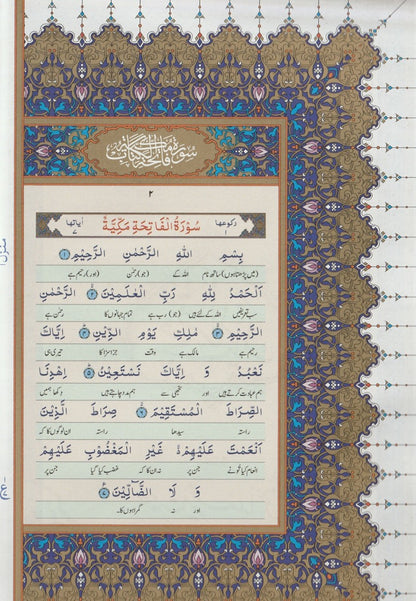 سورة فاتحة الكتاب مكية
۲
رکوعها ۱ سُوْرَةُ الْفَاتِحَةِ مَكِّيَّةٌ اٰیاتها ۷
بِسْمِ اللّٰهِ الرَّحْمٰنِ الرَّحِيْمِ ۝۱
(میں پڑھتا ہوں) ساتھ نام اللہ کے (جو) رحمٰن (اور) رحیم ہے
اَلْحَمْدُ لِلّٰهِ رَبِّ الْعٰلَمِيْنَ ۝۲ الرَّحْمٰنِ
سب تعریفیں اللہ کے لئے ہیں (جو) رب ہے تمام جہانوں کا رحمٰن ہے
الرَّحِيْمِ ۝۳ مٰلِكِ يَوْمِ الدِّيْنِ ۝۴ اِيَّاكَ
رحیم ہے مالک ہے وقت جزا سزا کا تیری ہی
نَعْبُدُ وَ اِيَّاكَ نَسْتَعِيْنُ ۝۵ اِهْدِنَا
ہم عبادت کرتے ہیں اور تجھی سے ہم مدد چاہتے ہیں دکھا ہمیں
الصِّرَاطَ الْمُسْتَقِيْمَ ۝۶ صِرَاطَ الَّذِيْنَ
راستہ سیدھا راستہ ان لوگوں کا کہ
اَنْعَمْتَ عَلَيْهِمْ غَيْرِ الْمَغْضُوْبِ عَلَيْهِمْ
انعام کیا تو نے جن پر نہ ان کا کہ غضب کیا گیا جن پر
وَ لَا الضَّآلِّيْنَ ۝۷
اور نہ گمراہوں کا۔
منزل ۱